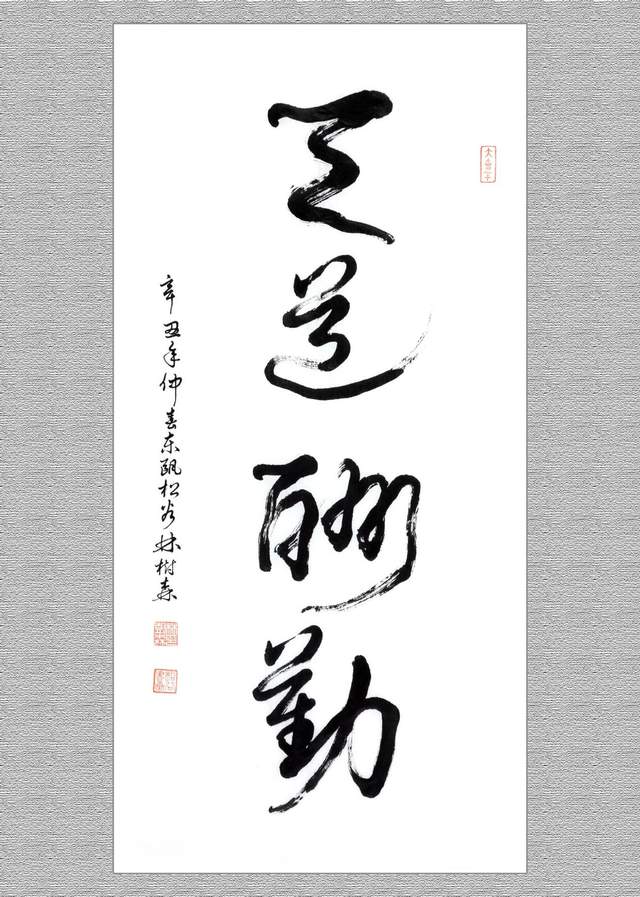 天道酬勤
辛丑年仲春东瓯松谷林树森